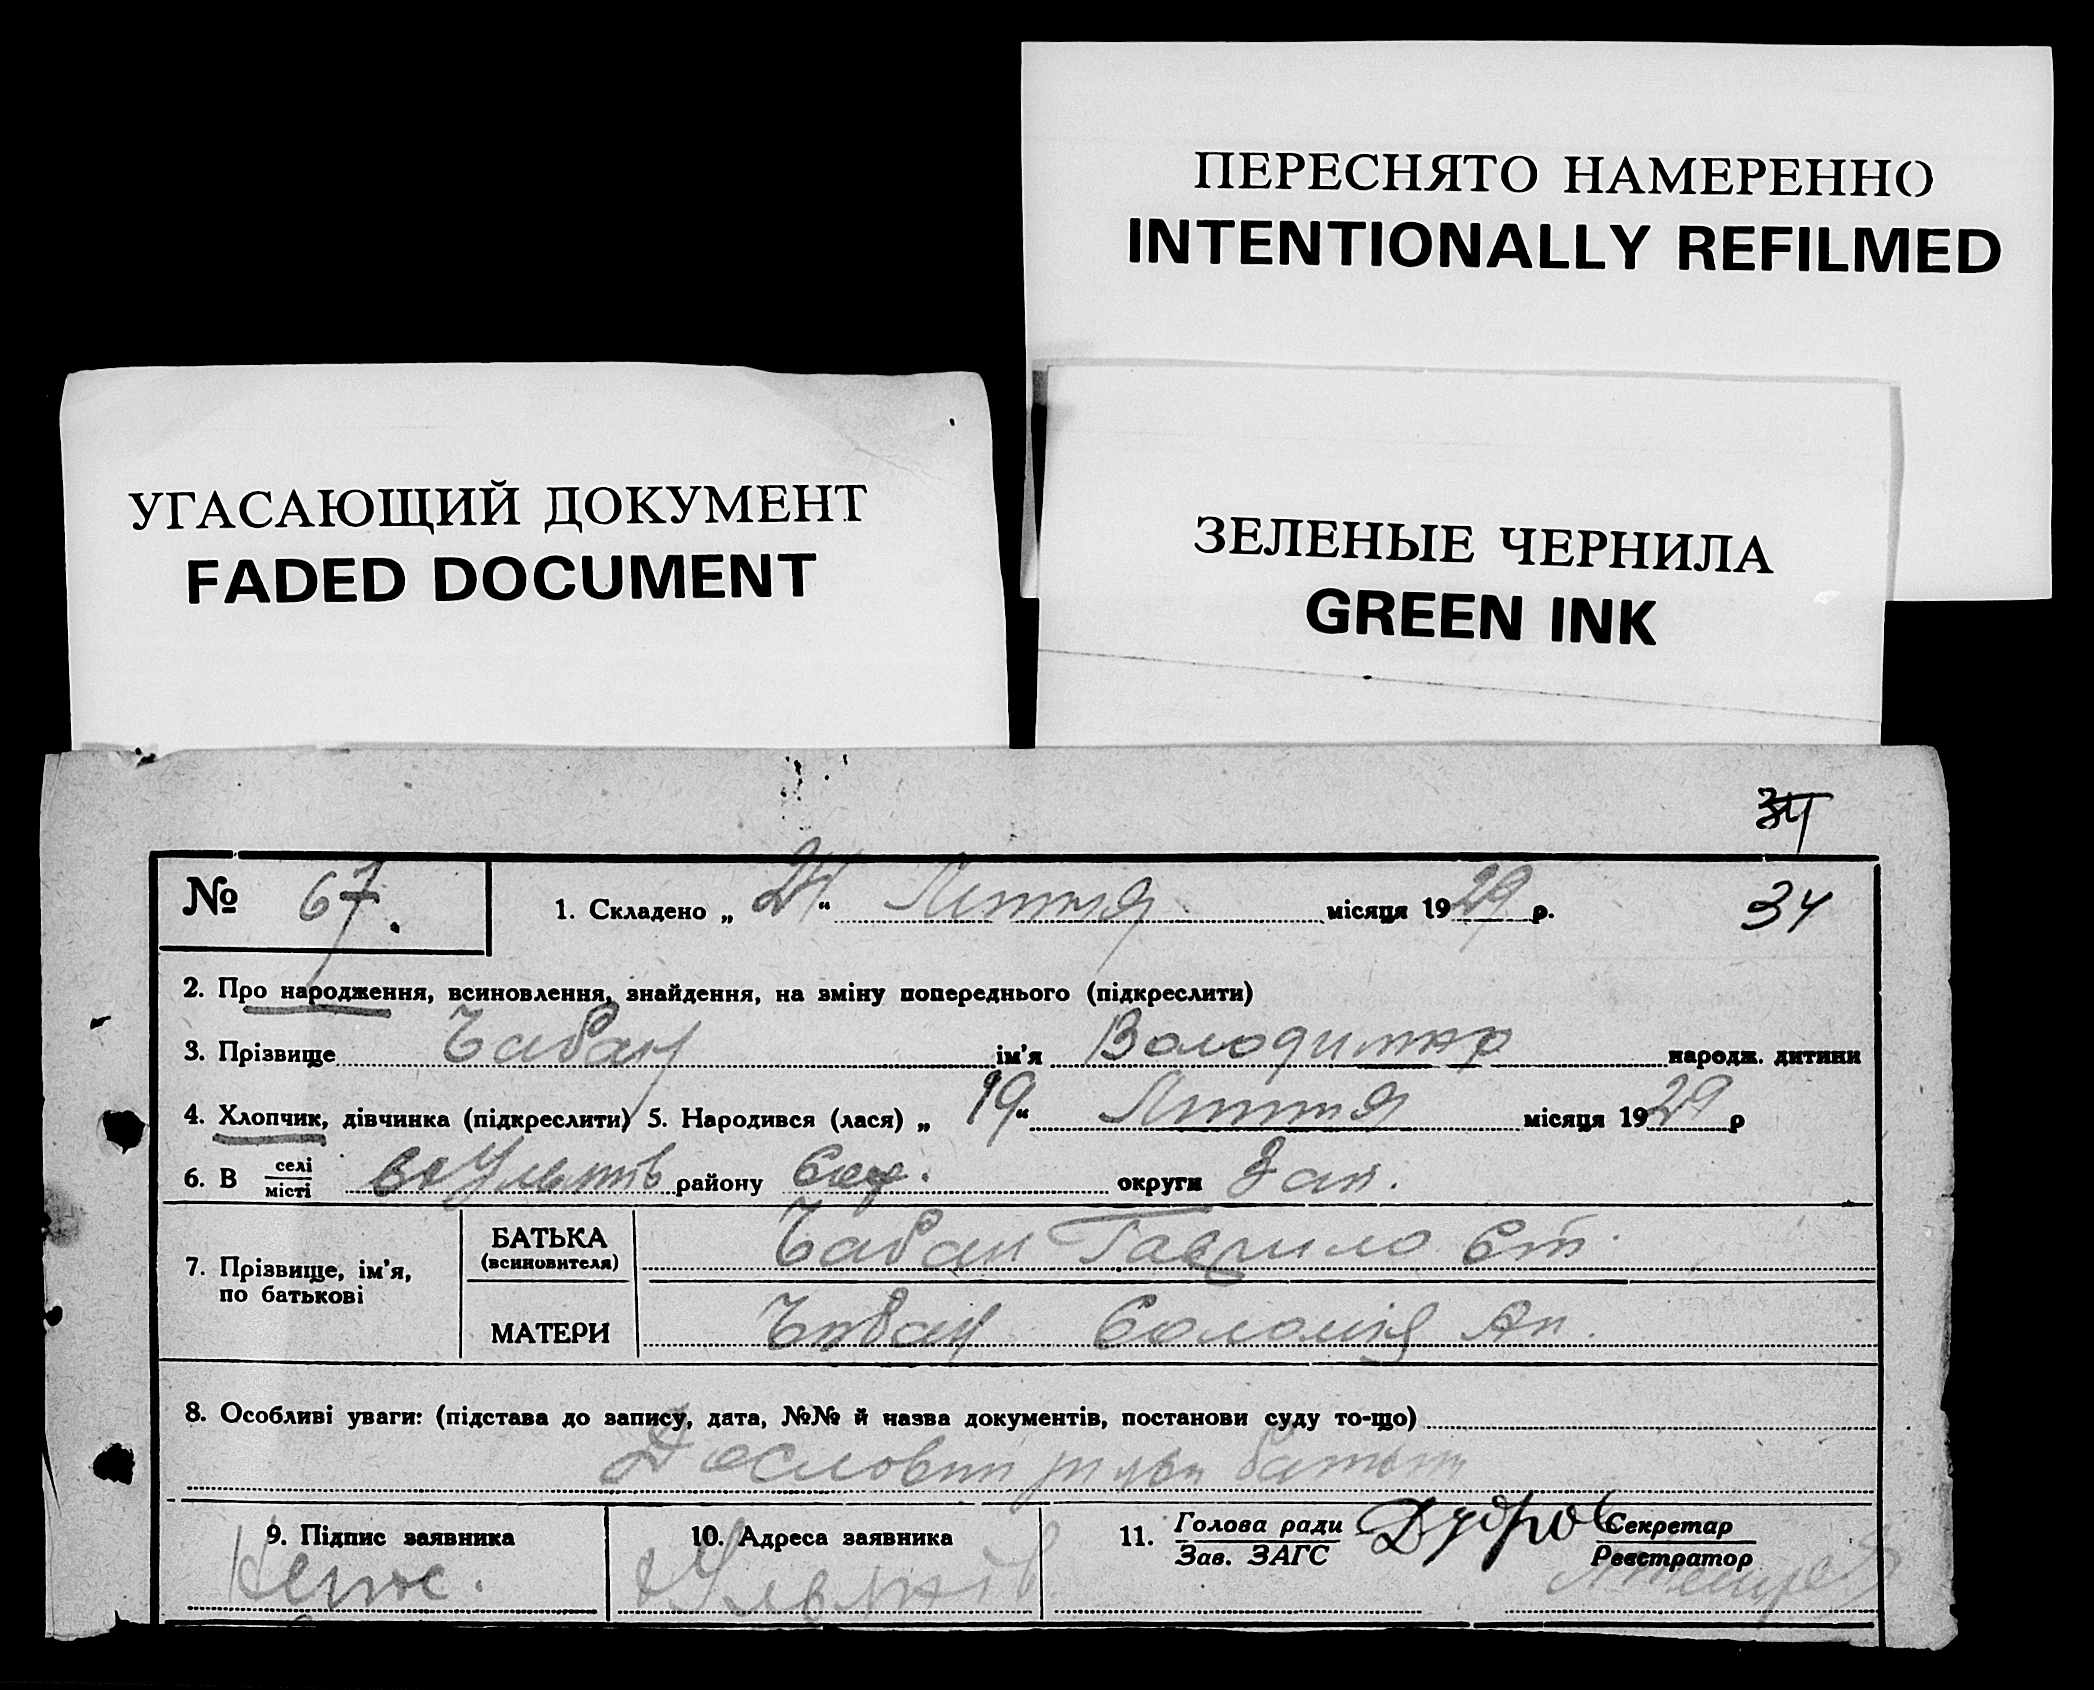 ПЕРЕСНЯТО НАМЕРЕННО
INTENTIONALLY REFILMED
УГАСАЮЩИЙ ДОКУМЕНТ
FADED DOCUMENT
ЗЕЛЕНЫЕ ЧЕРНИЛА
GREEN INK
34
№ 67.
1. Складено „ 24 “ Липня місяця 1929 р.
34
2. Про народження, всиновлення, знайдення, на зміну попереднього (підкреслити)
3. Прізвище Чабан ім'я Володимир народж. дитини
4. Хлопчик, дівчинка (підкреслити) 5. Народився (лася) „ 19 “ Липня місяця 1929 р
6. В селі місті району округи Зап.
7. Прізвище, ім'я, по батькові
БАТЬКА (всиновителя) Чабан Гаврило Ст.
МАТЕРИ Чабан Соломія Ан.
8. Особливі уваги: (підстава до запису, дата, №№ й назва документів, постанови суду то-що)
9. Підпис заявника
10. Адреса заявника
11. Голова ради Зав. ЗАГС
Секретар Реєстратор